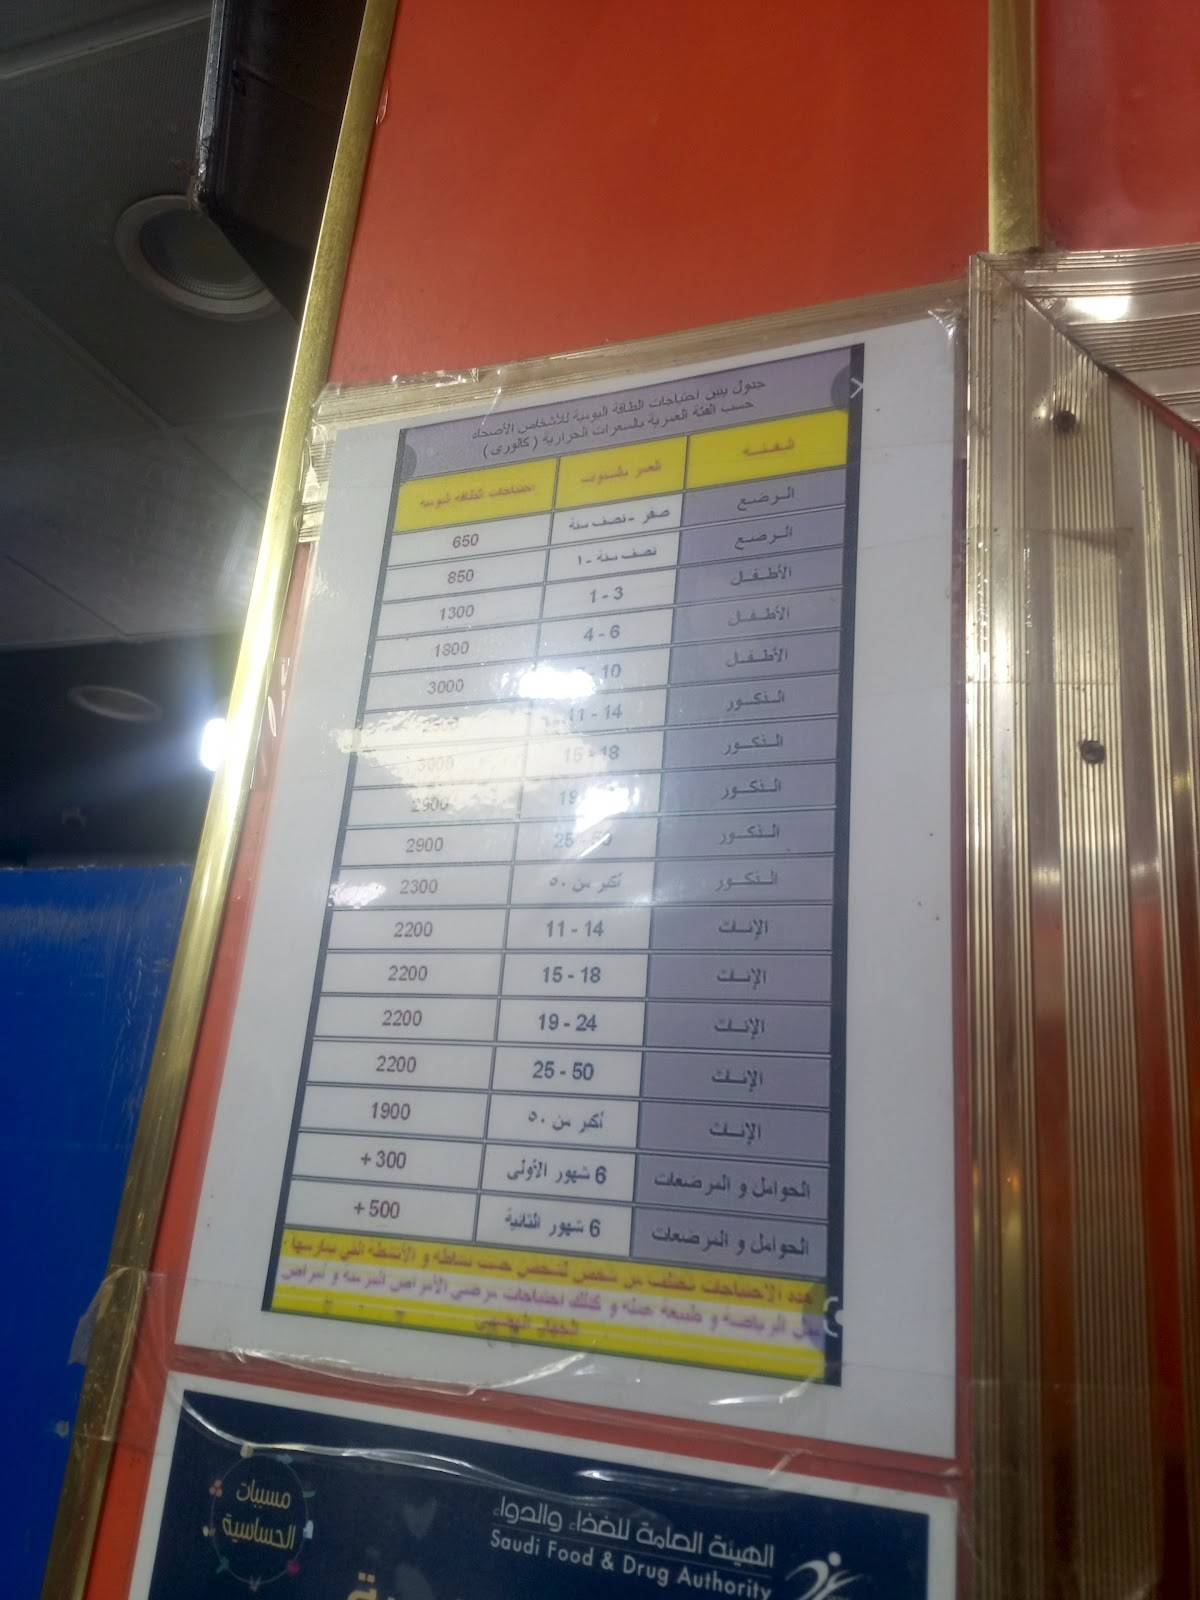 جدول يبين احتياجات الطاقة اليومية للأشخاص الأصحاء
حسب الفئة العمرية بالسعرات الحرارية ( كالوري )
الفئة العمر بالسنوات احتياجات الطاقة اليومية
الرضع صفر - نصف سنة 650
الرضع نصف سنة - ١ 850
الأطفال 1 - 3 1300
الأطفال 4 - 6 1800
الأطفال 10 3000
الذكور 11 - 14
الذكور 15 - 18 3000
الذكور 19 2900
الذكور 25 - 50 2900
الذكور أكبر من ٥٠ 2300
الإناث 11 - 14 2200
الإناث 15 - 18 2200
الإناث 19 - 24 2200
الإناث 25 - 50 2200
الإناث أكبر من ٥٠ 1900
الحوامل و المرضعات 6 شهور الأولى +300
الحوامل و المرضعات 6 شهور الثانية +500
هذه الاحتياجات تختلف من شخص لشخص حسب نشاطه و الأنشطة التي يمارسها
مثل الرياضة و طبيعة عمله و كذلك احتياجات مرضى الأمراض المزمنة و أمراض
الجهاز الهضمي
مسببات
الحساسية
الهيئة العامة للغذاء والدواء
Saudi Food & Drug Authority